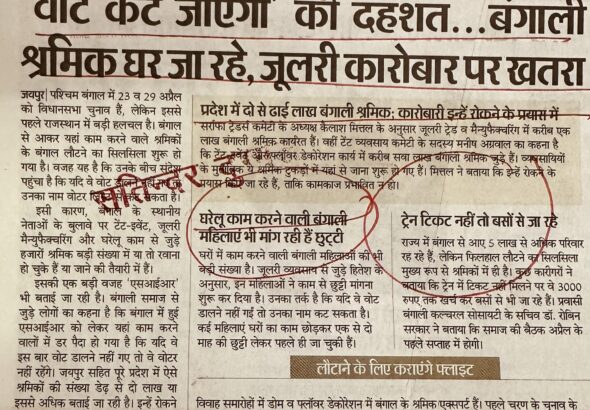 वोट कट जाएगा' की दहशत...बंगाली
श्रमिक घर जा रहे, जूलरी कारोबार पर खतरा
जयपुर| पश्चिम बंगाल में 23 व 29 अप्रैल
को विधानसभा चुनाव हैं, लेकिन इससे
पहले राजस्थान में बड़ी हलचल है। बंगाल
से आकर यहां काम करने वाले श्रमिकों
के बंगाल लौटने का सिलसिला शुरू हो
गया है। वजह यह है कि उनके बीच संदेश
पहुंचा है कि यदि वे वोट डालने नहीं गए तो
उनका नाम वोटर लिस्ट से कट सकता है।
इसी कारण, बंगाल के स्थानीय
नेताओं के बुलावे पर टेंट-इवेंट, जूलरी
मैन्युफैक्चरिंग और घरेलू काम से जुड़े
हजारों श्रमिक बड़ी संख्या में या तो रवाना
हो चुके हैं या जाने की तैयारी में हैं।
इसकी एक बड़ी वजह 'एसआईआर'
भी बताई जा रही है। बंगाली समाज से
जुड़े लोगों का कहना है कि बंगाल में हुई
एसआईआर को लेकर यहां काम करने
वालों में डर पैदा हो गया है कि यदि वे
इस बार वोट डालने नहीं गए तो वे वोटर
नहीं रहेंगे। जयपुर सहित पूरे प्रदेश में ऐसे
श्रमिकों की संख्या डेढ़ से दो लाख या
इससे अधिक बताई जा रही है। इन्हें रोकने
प्रदेश में दो से ढाई लाख बंगाली श्रमिक; कारोबारी इन्हें रोकने के प्रयास में
सर्राफा ट्रेडर्स कमेटी के अध्यक्ष कैलाश मित्तल के अनुसार जूलरी ट्रेड व मैन्युफैक्चरिंग में करीब एक
लाख बंगाली श्रमिक कार्यरत हैं। वहीं टेंट व्यवसाय कमेटी के सदस्य मनीष अग्रवाल का कहना
है कि टेंट, इवेंट और फ्लॉवर डेकोरेशन कार्य में करीब सवा लाख बंगाली श्रमिक जुड़े हैं। व्यवसायियों
के मुताबिक ये श्रमिक टुकड़ों में यहां से जाना शुरू हो गए हैं। मित्तल ने बताया कि इन्हें रोकने के
प्रयास किए जा रहे हैं, ताकि कामकाज प्रभावित न हो।
घरेलू काम करने वाली बंगाली
महिलाएं भी मांग रही हैं छुट्टी
घरों में काम करने वाली बंगाली महिलाओं की भी
बड़ी संख्या है। जूलरी व्यवसाय से जुड़े हितेश के
अनुसार, इन महिलाओं ने काम से छुट्टी मांगना
शुरू कर दिया है। उनका तर्क है कि यदि वे वोट
डालने नहीं गईं तो उनका नाम कट सकता है।
कई महिलाएं घरों का काम छोड़कर एक से दो
माह की छुट्टी लेकर पहले ही जा चुकी हैं।
ट्रेन टिकट नहीं तो बसों से जा रहे
राज्य में बंगाल से आए 5 लाख से अधिक परिवार
रह रहे हैं, लेकिन फिलहाल लौटने का सिलसिला
मुख्य रूप से श्रमिकों में ही है। कुछ कारीगरों ने
बताया कि ट्रेन में टिकट नहीं मिलने पर वे 3000
रुपए तक खर्च कर बसों से भी जा रहे हैं। प्रवासी
बंगाली कल्चरल सोसायटी के सचिव डॉ. रोबिन
सरकार ने बताया कि समाज की बैठक अप्रैल के
पहले सप्ताह में होगी।
लौटाने के लिए कराएंगे फ्लाइट
विवाह समारोहों में डोम व फ्लॉवर डेकोरेशन में बंगाल के श्रमिक एक्सपर्ट हैं। पहले चरण के चुनाव के